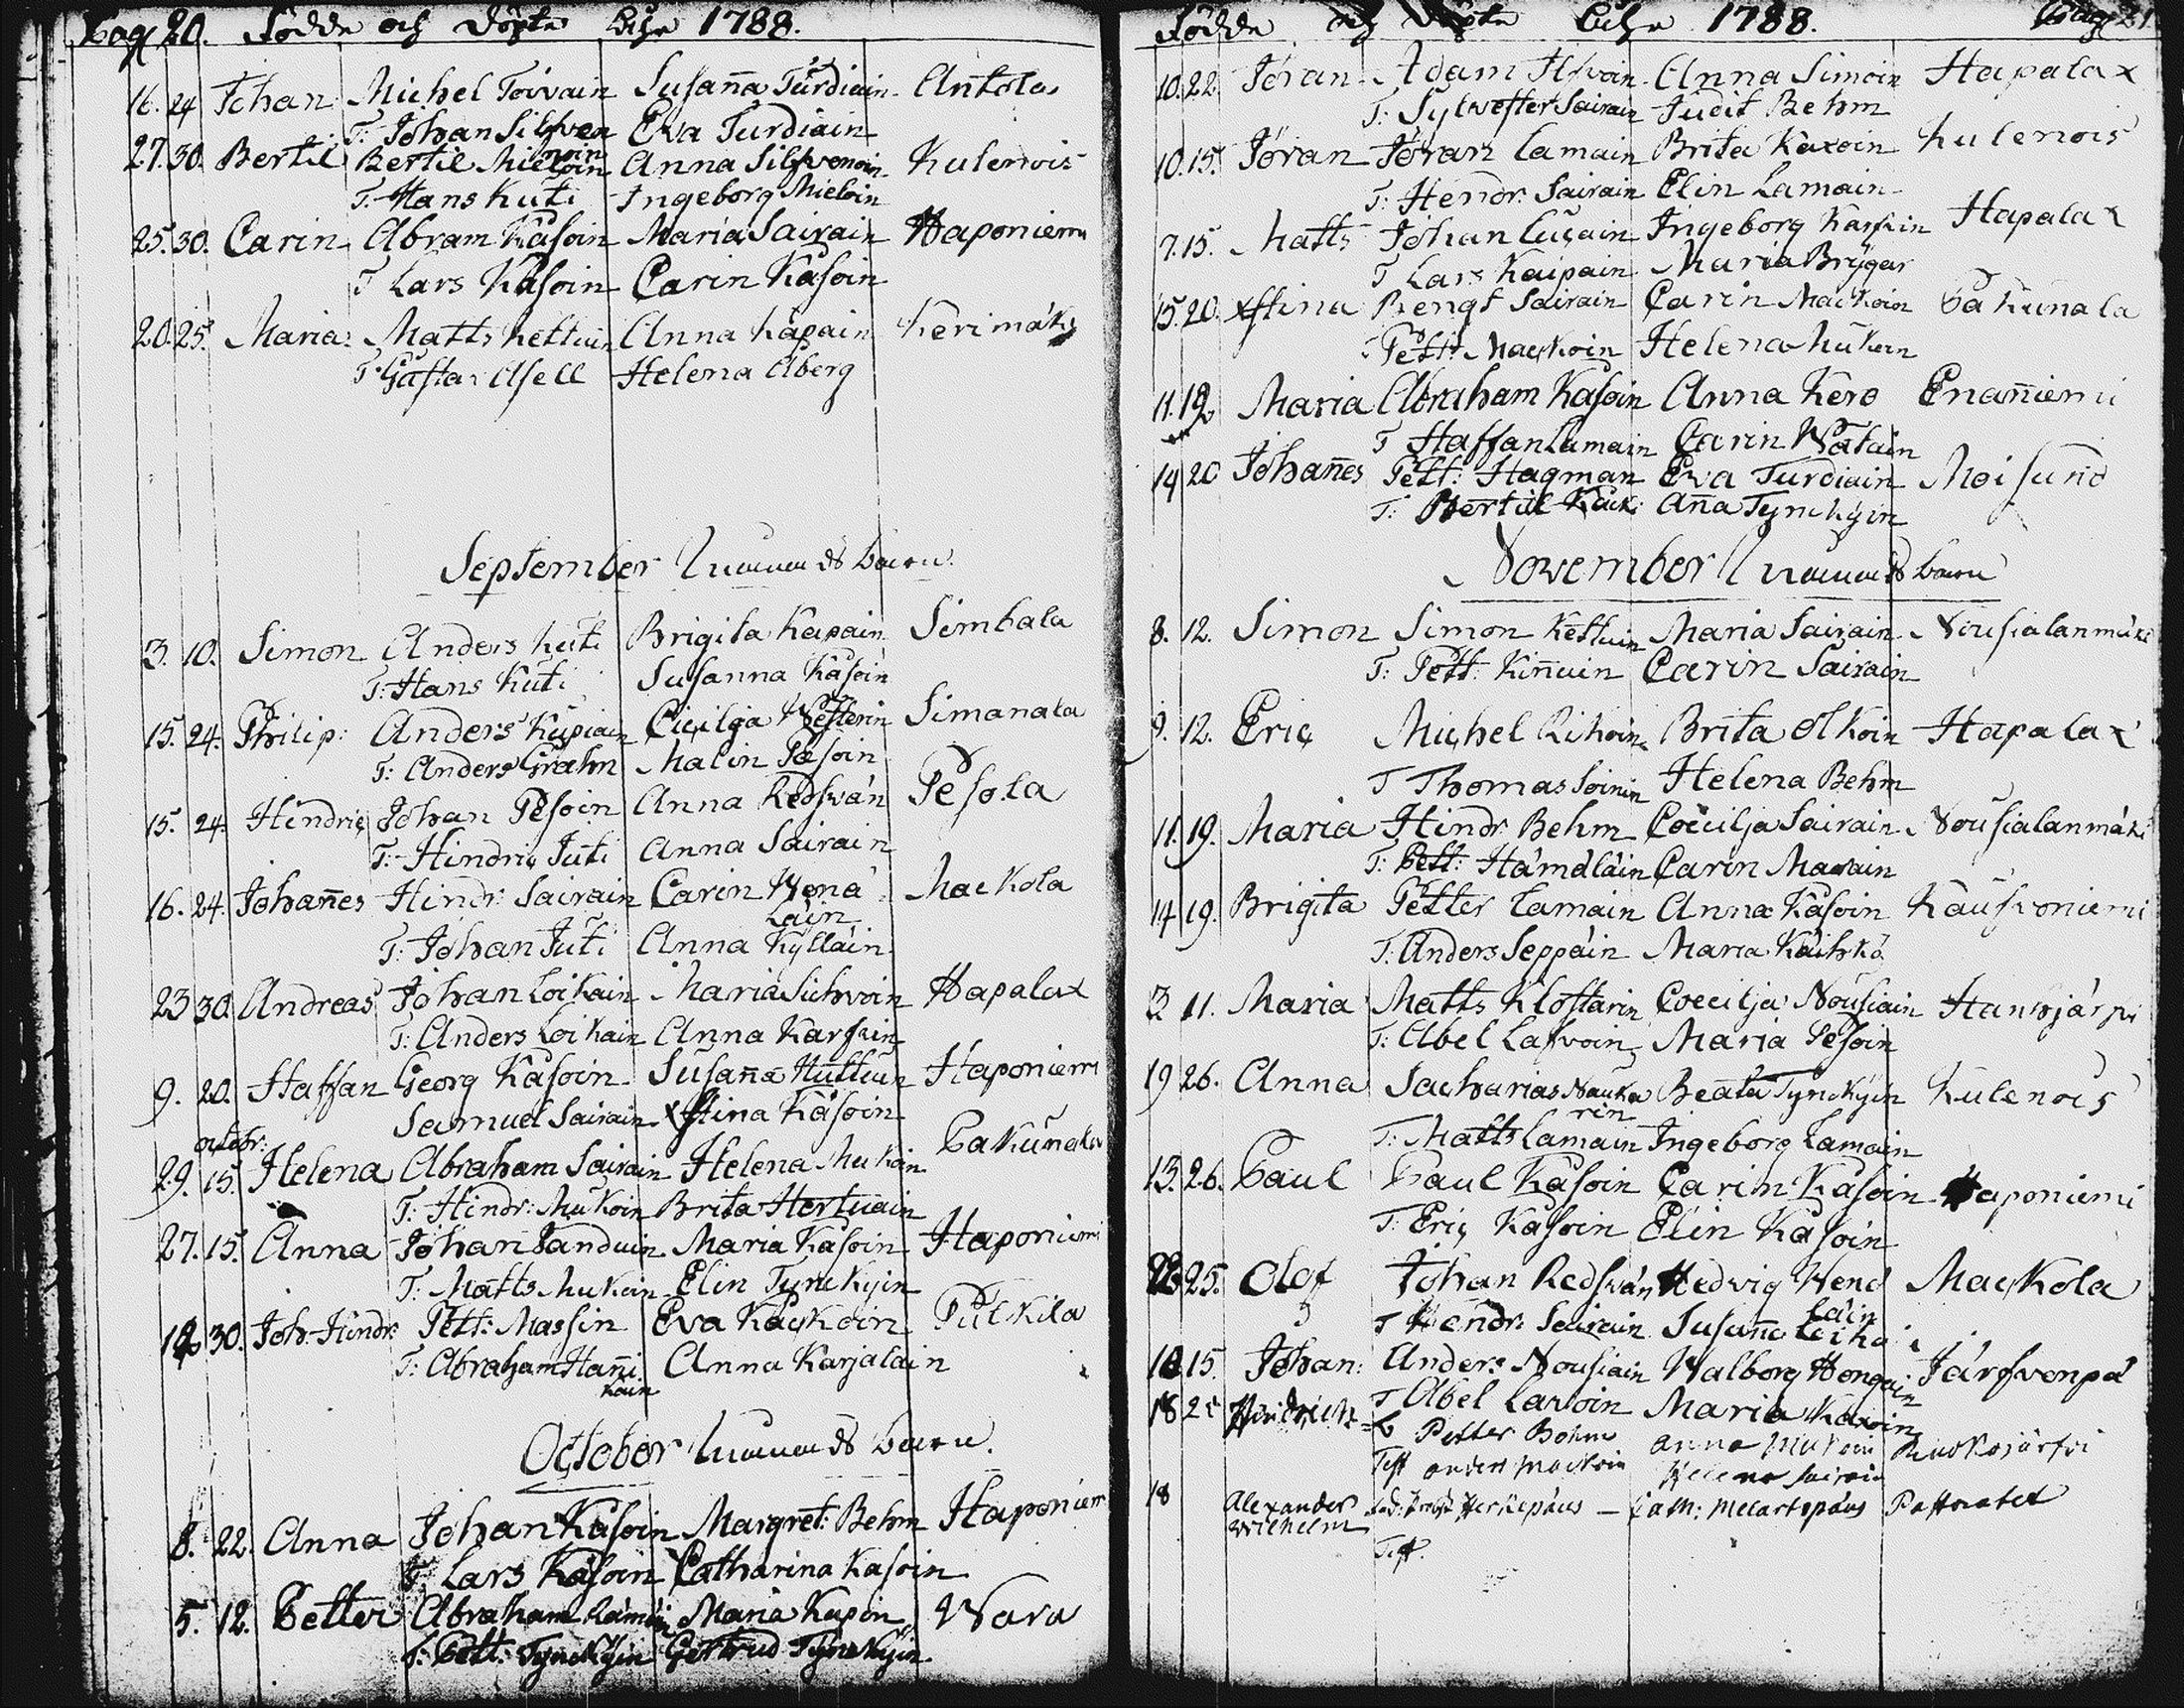 Pag 20. Födde och Döpte Åhr 1788.
16. 24 Johan Michel Toivain Susaña Turdiain Antola
T: Johan Silfven Eva Turdiain
27. 30. Bertil Bertil Mieloin Anna Silfvenoin Kulenois
T: Hans Kuti Ingeborg Mieloin
25. 30. Carin Abram Kåsoin Maria Sairain Haponiemi
T Lars Kåsoin Carin Kåsoin
20. 25. Maria Matts Kettuin Anna Kåpain Kerimäki
T: Gustav Asell Helena Åberg
September
3. 10. Simon Anders Kuti Brigita Kapain Simbala
T: Hans Kuti Susanna Kåsoin
15. 24. Philip: Anders Kupiain Ciçilja Westerin Simanala
T: Anders Grahn Malin Pesoin
15. 24. Hindriç Johan Pesoin Anna Redsván Pesola
T: Hindriç Juti Anna Sairain
16. 24. Johañes Hindr: Sairain Carin Wenä Mackola
läin
T: Johan Juti Anna Kylläin
23 30. Andreas Johan Loikain Maria Sichvoin Hapalax
T: Anders Loikain Anna Karfvin
9. 20. Staffan Georg Kåsoin Susaña Huttun Haponiemi
Samuel Sairain Xstina Kåsoin
octobr:
29. 15. Helena Abraham Sairain Helena Mukoin Pakunala
T: Hindr: Mukoin Brita Hertuain
27. 15. Anna Johan Tanduin Maria Kåsoin Haponiemi
T: Matts Mukoin Elin Tynckyin
30. Joh: Hindr: Pett: Massin Eva Kaçkoin Putkila
T: Abraham Hañi Anna Karjalain
kain
October
8. 22. Anna Johan Kåsoin Margret: Behm Haponiem
T: Lars Kåsoin Catharina Kasoin
5. 12. Petter Abraham Rämöin Maria Kupin Wara
T: Pett: Tynckyin Gertrud Tynckyin
Födde och Döpte Åhr 1788. Pag 21.
10. 22. Jöran Adam Ilfvoin Anna Simoin Hapalax
T: Sylwester Sairain Judit Behm
10. 15. Jöran Jöran Lamain Brita Kaxoin Kulenois
T: Hendr: Sairain Elin Lamain
7. 15. Matts Johan Cuçain Ingeborg Karfvin Hapalax
T Lars Kaipain Maria Brygar
15. 20. Xstina Bengt Sairain Carin Mackoin Pakunala
Pett: Maçkoin Helena Mukoin
11. 12 Maria Abraham Kasoin Anna Kero Enañiemi
T Staffan Lamain Carin Watain
14 20 Johañes Pett: Hagman Eva Turdiain Moisund
T: Bertil Kuki Aña Tynckyin
November
8. 12. Simon Simon Kettuin Maria Sairain Nousialanmäki
T: Pett: Kiñuin Carin Sairain
9. 12. Eriç Michel Rihoin Brita Olkoin Hapalax
T Thomas Soinin Helena Behm
11. 19. Maria Hindr: Behm Coecilja Sairain Nousialanmäki
T: Pett: Hämäläin Carin Marain
14 19. Brigita Petter Lamain Anna Kåsoin Kaufvoniemi
T: Anders Seppäin Maria Kaihko
3 11. Maria Matts Klostarin Coecilja Nousiain Hanhjärpi
T: Abel Lafvoin Maria Pesoin
19 26. Anna Sacharias Nauka Beata Tynckyin Kulenois
rin
T: Matts Lamain Ingeborg Lamain
13. 26. Paul Paul Kåsoin Carin Kåsoin Haponiemi
T: Eriç Kåsoin Elin Kåsoin
25. Olof Johan Redsvån Hedvig Wenä Maçkola
läin
T Hendr: Sairain Susaña Loikai
10 15. Johan: Anders Nousiain Walborg Hongain Järfvenpä
T Abel Lavoin Maria Kaxoin
18 25 Hindrich Petter Bohm Anna Mukoin Ruokojärfvi
Test Anders Mackoin Helena Sairain
18 Alexander Herkepæus — Cath: Melartopæus Pastoratet
Wilhelm
Test.